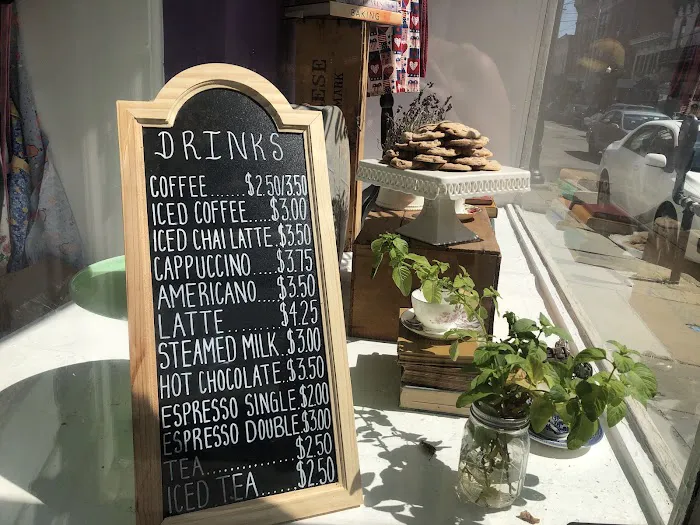 BAKING
ESE
MARK
DRINKS
COFFEE.......$2.50/3.50
ICED COFFEE.....$3.00
ICED CHAI LATTE.$3.50
CAPPUCCINO....$3.75
AMERICANO....$3.50
LATTE.........$4.25
STEAMED MILK.$3.00
HOT CHOCOLATE.$3.50
ESPRESSO SINGLE.$2.00
ESPRESSO DOUBLE.$3.00
TEA..............$2.50
ICED TEA......$2.50